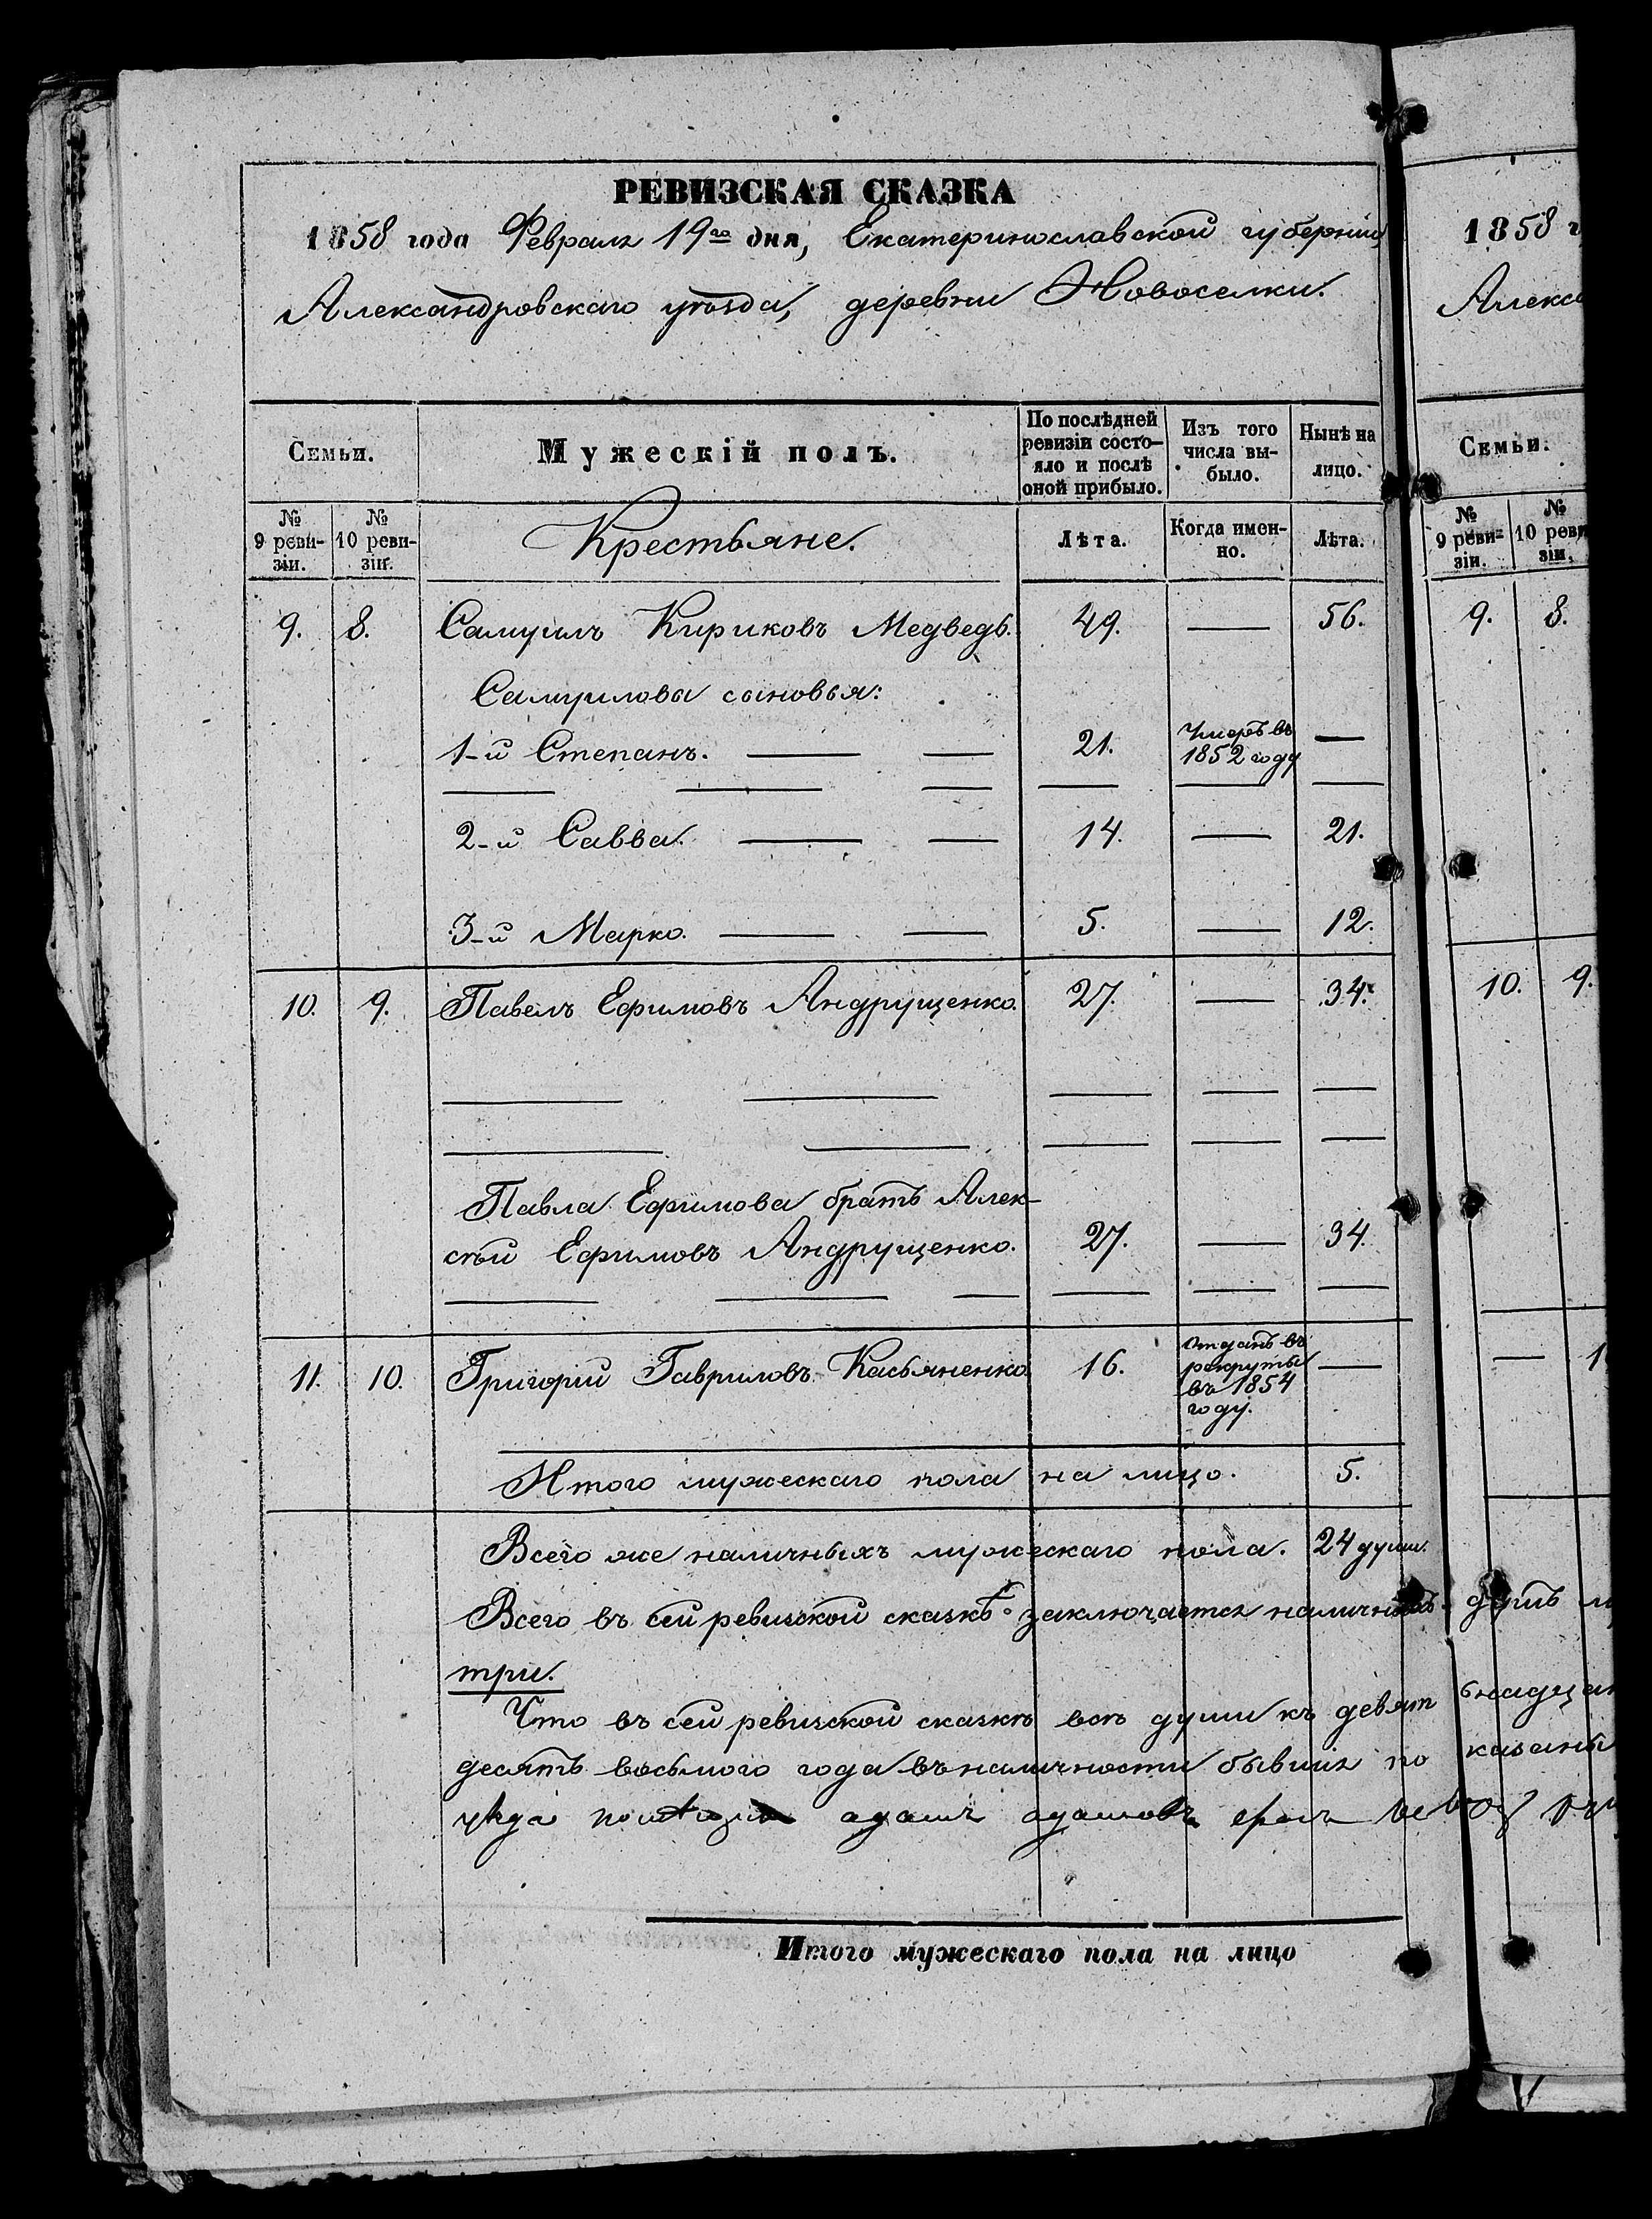 РЕВИЗСКАЯ СКАЗКА
1858 года Февраля 19го дня, Екатеринославской губерніи
Александровскаго уѣзда, деревни Новоселки.
Семьи.
Мужескій полъ.
По послѣдней ревизіи состо-яло и послѣ оной прибыло.
Изъ того числа вы-было.
Нынѣ на лицо.
№ 9 реви-зіи.
№ 10 реви-зіи.
Крестьяне.
Лѣта.
Когда имен-но.
Лѣта.
9. 8. Самуилъ Кириковъ Медведь. 49. — 56.
Самуилова сыновья:
1-й Степанъ. — — 21. Умеръ въ 1852 году —
2-й Савва. — — 14. — 21.
3-й Марко. — — 5. — 12.
10. 9. Павелъ Ефимовъ Андрущенко. 27. — 34.
Павла Ефимова братъ Алек-
сѣй Ефимовъ Андрущенко. 27. — 34.
11. 10. Григорій Гавриловъ Касьяненко 16. Отданъ въ рекруты въ 1854 году. —
Итого мужескаго пола на лицо. 5.
Всего же наличныхъ мужескаго пола. 24 души.
Всего въ сей ревизской сказкѣ заключается наличныхъ
три.
Что въ сей ревизской сказкѣ всѣ души къ девят
десятъ восьмого года въ наличности бывшія по
Итого мужескаго пола на лицо
1858 г
Алекса
Семьи.
№ 9 реви=зіи.
№ 10 реви зіи.
9. 8.
10. 9.
— 1
душъ
надцат
казаны